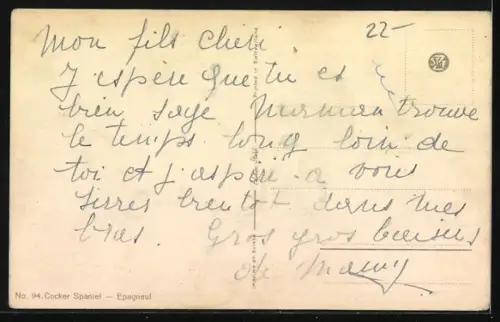 22-
Mon fils cheri
J'espère que tu es
bien sage Maman trouve
le temps long loin de
toi et j'aspire a vous
serres bientot dans mes
bras. Gros gros baisers
de Mamy
Printed in Switzerland
No. 94. Cocker Spaniel — Epagneul